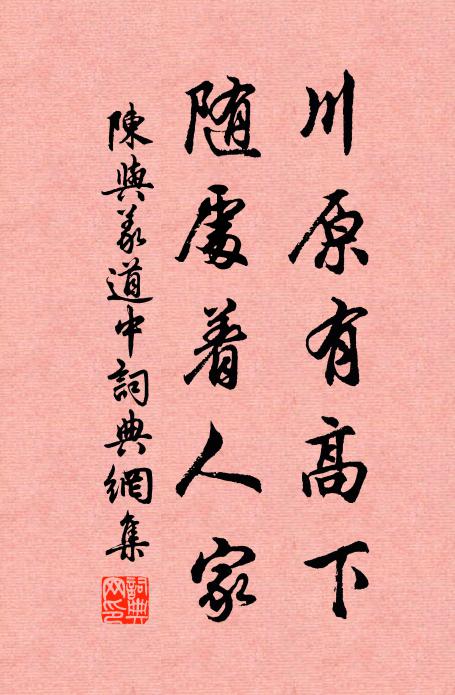 川原有高下
随處着人家
陳與義道中詞典網集
詞典網印